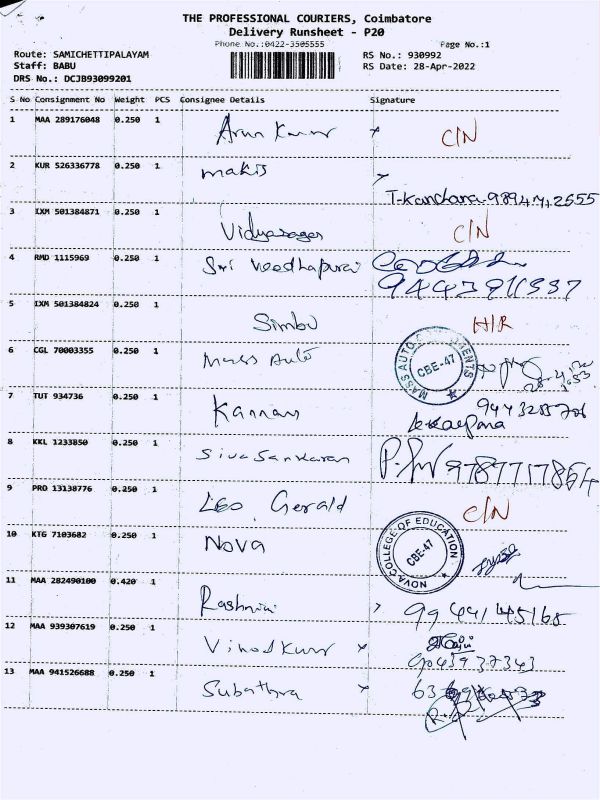 THE PROFESSIONAL COURIERS, Coimbatore
Delivery Runsheet - P20
Phone No.:0422-3505555 Page No.:1
Route: SAMICHETTIPALAYAM RS No.: 930992
Staff: BABU RS Date: 28-Apr-2022
DRS No.: DCJB93099201
S No Consignment No Weight PCS Consignee Details Signature
1 MAA 289176048 0.250 1 Arun Kumar x C/N
2 KUR 526336778 0.250 1 makis
T-Kanchana 9894742555
3 IXM 501384871 0.250 1 Vidyasagar C/N
4 RMD 1115969 0.250 1 Sri veedhapurai
9443911337
5 IXM 501384824 0.250 1 Simbu H/R
6 CGL 70003355 0.250 1 Mass Auto MASS AUTO COMPONENTS CBE-47
7 TUT 934736 0.250 1 Kannan
k-kalpana
8 KKL 1233850 0.250 1 Sivasankaran 9787717864
9 PRO 13138776 0.250 1 Leo Gerald C/N
10 KTG 7103682 0.250 1 Nova NOVA COLLEGE OF EDUCATION CBE-47
11 MAA 282490100 0.420 1 Rashmini 9944145165
12 MAA 939307619 0.250 1 Vinodkumr x
9043937343
13 MAA 941526688 0.250 1 Subathra x